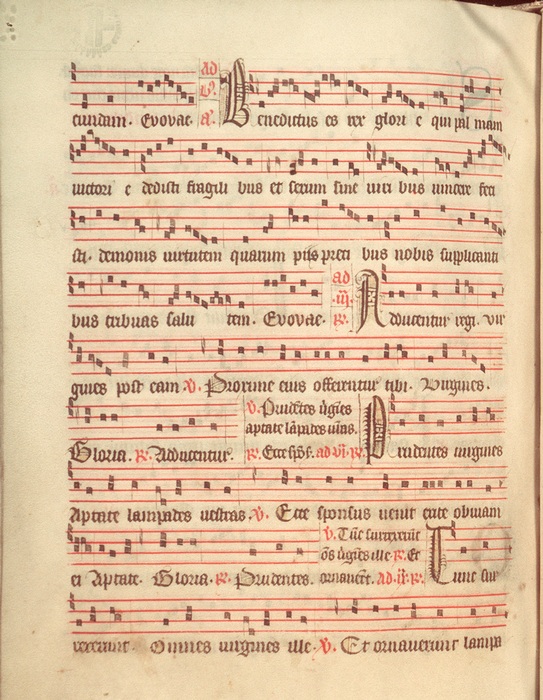 cundam. Evovae. ad v̕. a̕. Benedictus es rex glori e qui pal mam
uictori e dedisti fragili bus et sexum sine uiri bus uincere feci
sti. demonis uirtutem quarum piis preci bus nobis supplicanti
bus tribuas salu tem. Evovae. ad .iij. R̕. Aducentur regi. vir
gines post eam v̕. Proxime eius offerentur tibi. Virgines.
Gloria. R̕. Aducentur. v̕. Prudētes ūgīes
aptate lāpades uras. R̕. Ecce spōs. ad vi. R̕. Prudentes uirgines
Aptate lampades uestras. v̕. Ecce sponsus uenit exite obuiam
ei Aptate. Gloria. R̕. Prudentes. v̕. Tūc surrexerūt
ōs ūgīes ille R̕. Et
ornauert. ad .ix. R̕. Tunc sur
rexerunt Omnes uirgines ille. v̕. Et ornauerunt lampa